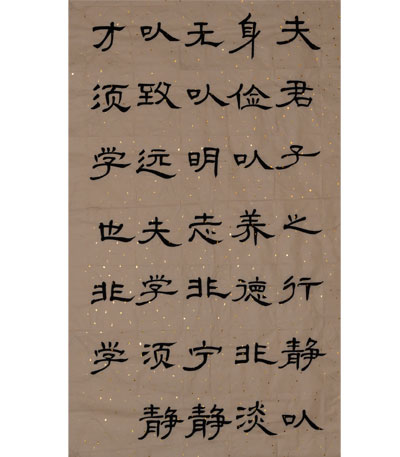 夫君子之行静以
身俭以养德非淡
无以明志非宁静
以致远夫学须静
才须学也非学